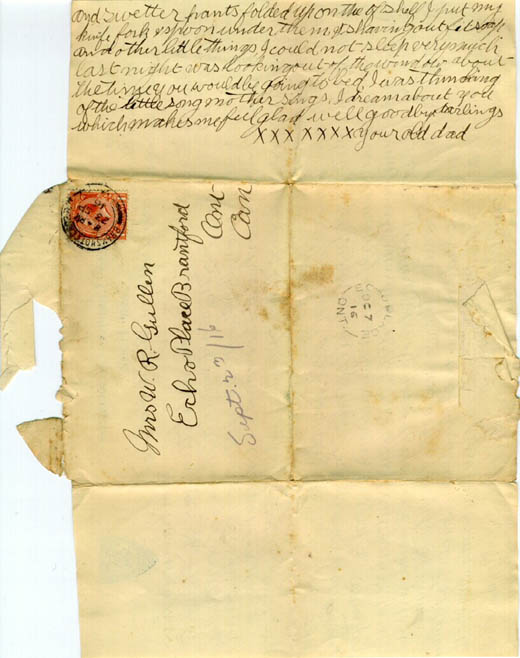 and swetter pants folded up on the of shelf I put my
knife fork & spoon under them & shaving outfit soap
and other little things I could not sleep very much
last night was looking out of the window about
the time you would be going to bed, I was thinking
of the little song mother sings, I dream about you
which makes me feel glad well goodbye darlings
XXX XXXX your old dad
Mrs W. R. Gullen
Echo Place Brantford
Ont
Can
Sept. 27/16
OC 7
16
ONT